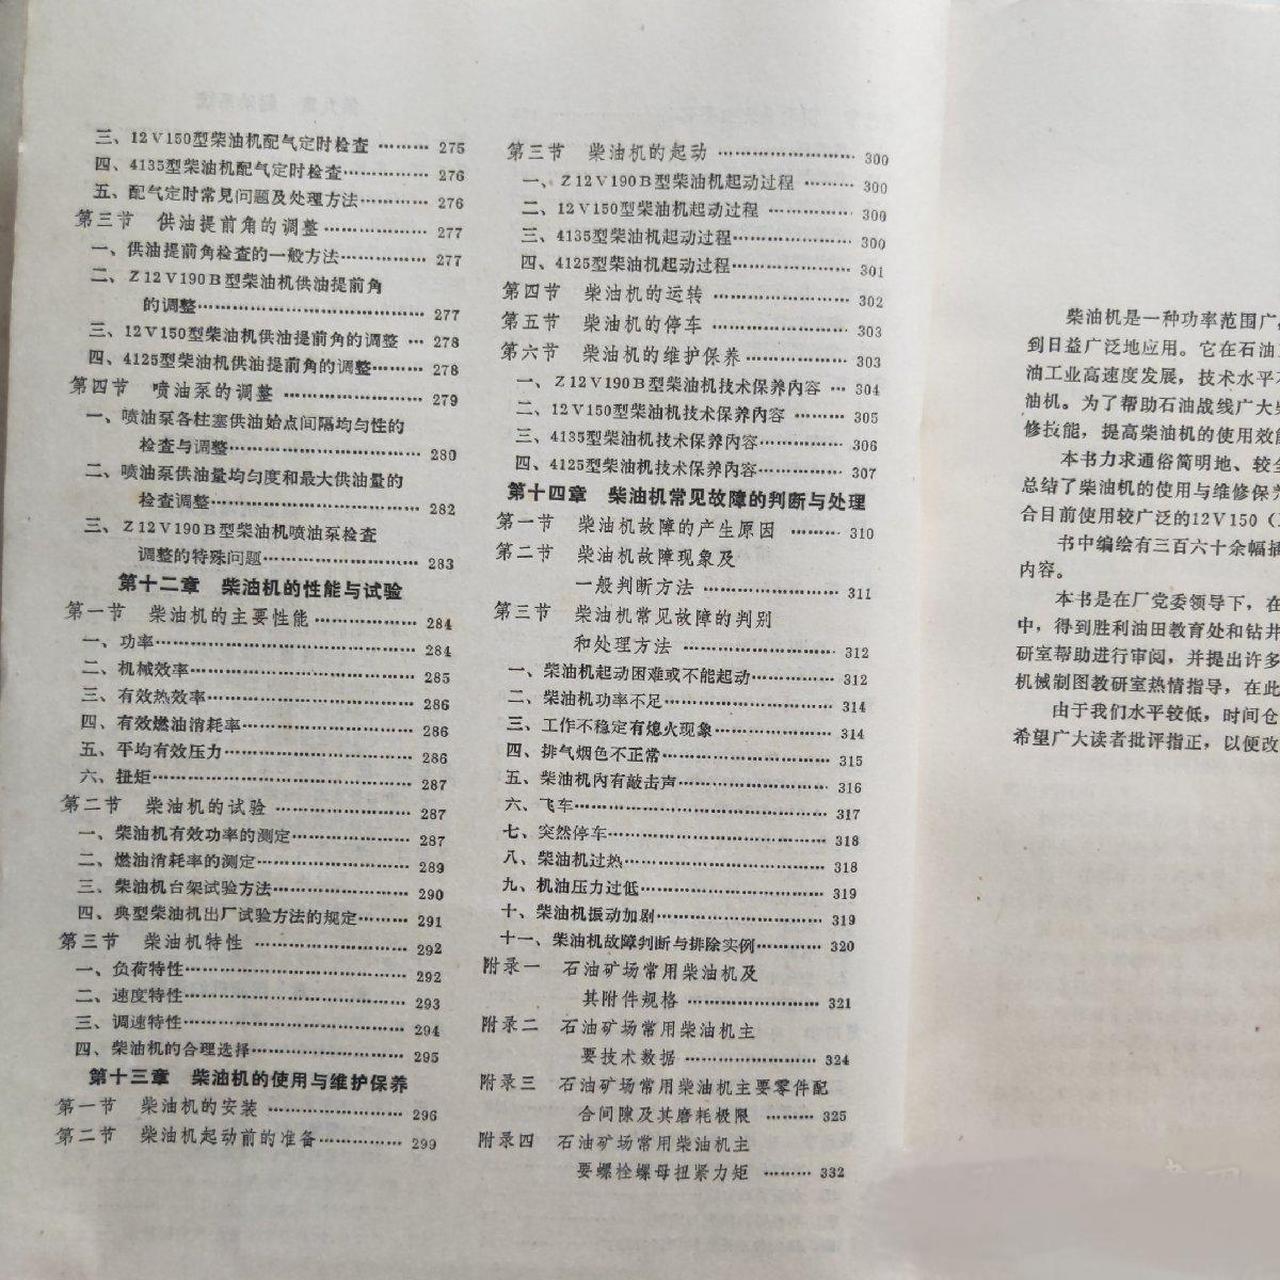 三、12V150型柴油机配气定时检查 ……… 275
四、4135型柴油机配气定时检查………… 276
五、配气定时常见问题及处理方法………… 276
第三节 供油提前角的调整 ……………… 277
一、供油提前角检查的一般方法…………… 277
二、Z12V190B型柴油机供油提前角
的调整………………………………… 277
三、12V150型柴油机供油提前角的调整 … 278
四、4125型柴油机供油提前角的调整……… 278
第四节 喷油泵的调整 …………………… 279
一、喷油泵各柱塞供油始点间隔均匀性的
检查与调整…………………………… 280
二、喷油泵供油量均匀度和最大供油量的
检查调整……………………………… 282
三、Z12V190B型柴油机喷油泵检查
调整的特殊问题……………………… 283
第十二章 柴油机的性能与试验
第一节 柴油机的主要性能 ……………… 284
一、功率……………………………………… 284
二、机械效率………………………………… 285
三、有效热效率……………………………… 286
四、有效燃油消耗率………………………… 286
五、平均有效压力…………………………… 286
六、扭矩……………………………………… 287
第二节 柴油机的试验 …………………… 287
一、柴油机有效功率的测定………………… 287
二、燃油消耗率的测定……………………… 289
三、柴油机台架试验方法…………………… 290
四、典型柴油机出厂试验方法的规定……… 291
第三节 柴油机特性 ……………………… 292
一、负荷特性………………………………… 292
二、速度特性………………………………… 293
三、调速特性………………………………… 294
四、柴油机的合理选择……………………… 295
第十三章 柴油机的使用与维护保养
第一节 柴油机的安装 …………………… 296
第二节 柴油机起动前的准备…………… 299
第三节 柴油机的起动 …………………… 300
一、Z12V190B型柴油机起动过程 ……… 300
二、12V150型柴油机起动过程 ………… 300
三、4135型柴油机起动过程……………… 300
四、4125型柴油机起动过程……………… 301
第四节 柴油机的运转 …………………… 302
第五节 柴油机的停车 …………………… 303
第六节 柴油机的维护保养 ……………… 303
一、Z12V190B型柴油机技术保养内容 … 304
二、12V150型柴油机技术保养内容 ……… 305
三、4135型柴油机技术保养内容………… 306
四、4125型柴油机技术保养内容………… 307
第十四章 柴油机常见故障的判断与处理
第一节 柴油机故障的产生原因 ……… 310
第二节 柴油机故障现象及
一般判断方法 …………………… 311
第三节 柴油机常见故障的判别
和处理方法 ……………………… 312
一、柴油机起动困难或不能起动………… 312
二、柴油机功率不足……………………… 314
三、工作不稳定有熄火现象……………… 314
四、排气烟色不正常……………………… 315
五、柴油机内有敲击声…………………… 316
六、飞车…………………………………… 317
七、突然停车……………………………… 318
八、柴油机过热…………………………… 318
九、机油压力过低………………………… 319
十、柴油机振动加剧……………………… 319
十一、柴油机故障判断与排除实例……… 320
附录一 石油矿场常用柴油机及
其附件规格 ………………… 321
附录二 石油矿场常用柴油机主
要技术数据 ………………… 324
附录三 石油矿场常用柴油机主要零件配
合间隙及其磨耗极限 ……… 325
附录四 石油矿场常用柴油机主
要螺栓螺母扭紧力矩 ……… 332
柴油机是一种功率范围广,
到日益广泛地应用。它在石油
油工业高速度发展，技术水平
油机。为了帮助石油战线广大
修技能，提高柴油机的使用效
本书力求通俗简明地、较
总结了柴油机的使用与维修保
合目前使用较广泛的12V150（
书中编绘有三百六十余幅插
内容。
本书是在厂党委领导下，在
中，得到胜利油田教育处和钻井
研室帮助进行审阅，并提出许多
机械制图教研室热情指导，在此
由于我们水平较低，时间仓
希望广大读者批评指正，以便改